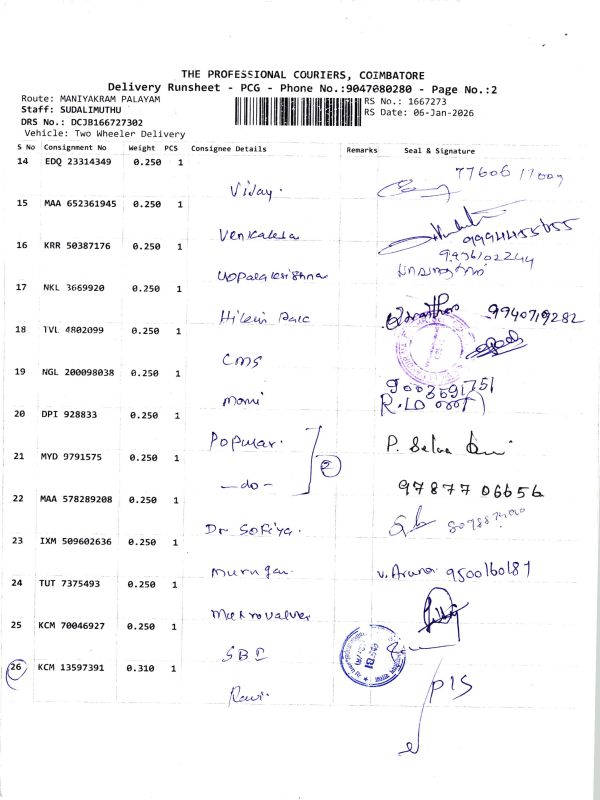 THE PROFESSIONAL COURIERS, COIMBATORE
Delivery Runsheet - PCG - Phone No.:9047080280 - Page No.:2
Route: MANIYAKRAM PALAYAM
Staff: SUDALIMUTHU
RS No.: 1667273
DRS No.: DCJB166727302
RS Date: 06-Jan-2026
Vehicle: Two Wheeler Delivery
S No Consignment No Weight PCS Consignee Details Remarks Seal & Signature
14 EDQ 23314349 0.250 1
Vijay.
15 MAA 652361945 0.250 1
Venkatesa 9994455655
16 KRR 50387176 0.250 1
9976102244
Gopalakrishna
17 NKL 3669920 0.250 1
9940719282
18 TVL 4802099 0.250 1
CMS
19 NGL 200098038 0.250 1
9003591751
Mani
20 DPI 928833 0.250 1
Popular. P. Selva
21 MYD 9791575 0.250 1
-do- 2 97877 06656
22 MAA 578289208 0.250 1
Dr Sofiya.
23 IXM 509602636 0.250 1
Murugan. v. Aruna 9500160187
24 TUT 7375493 0.250 1
25 KCM 70046927 0.250 1
SBI
26 KCM 13597391 0.310 1
Ravi.